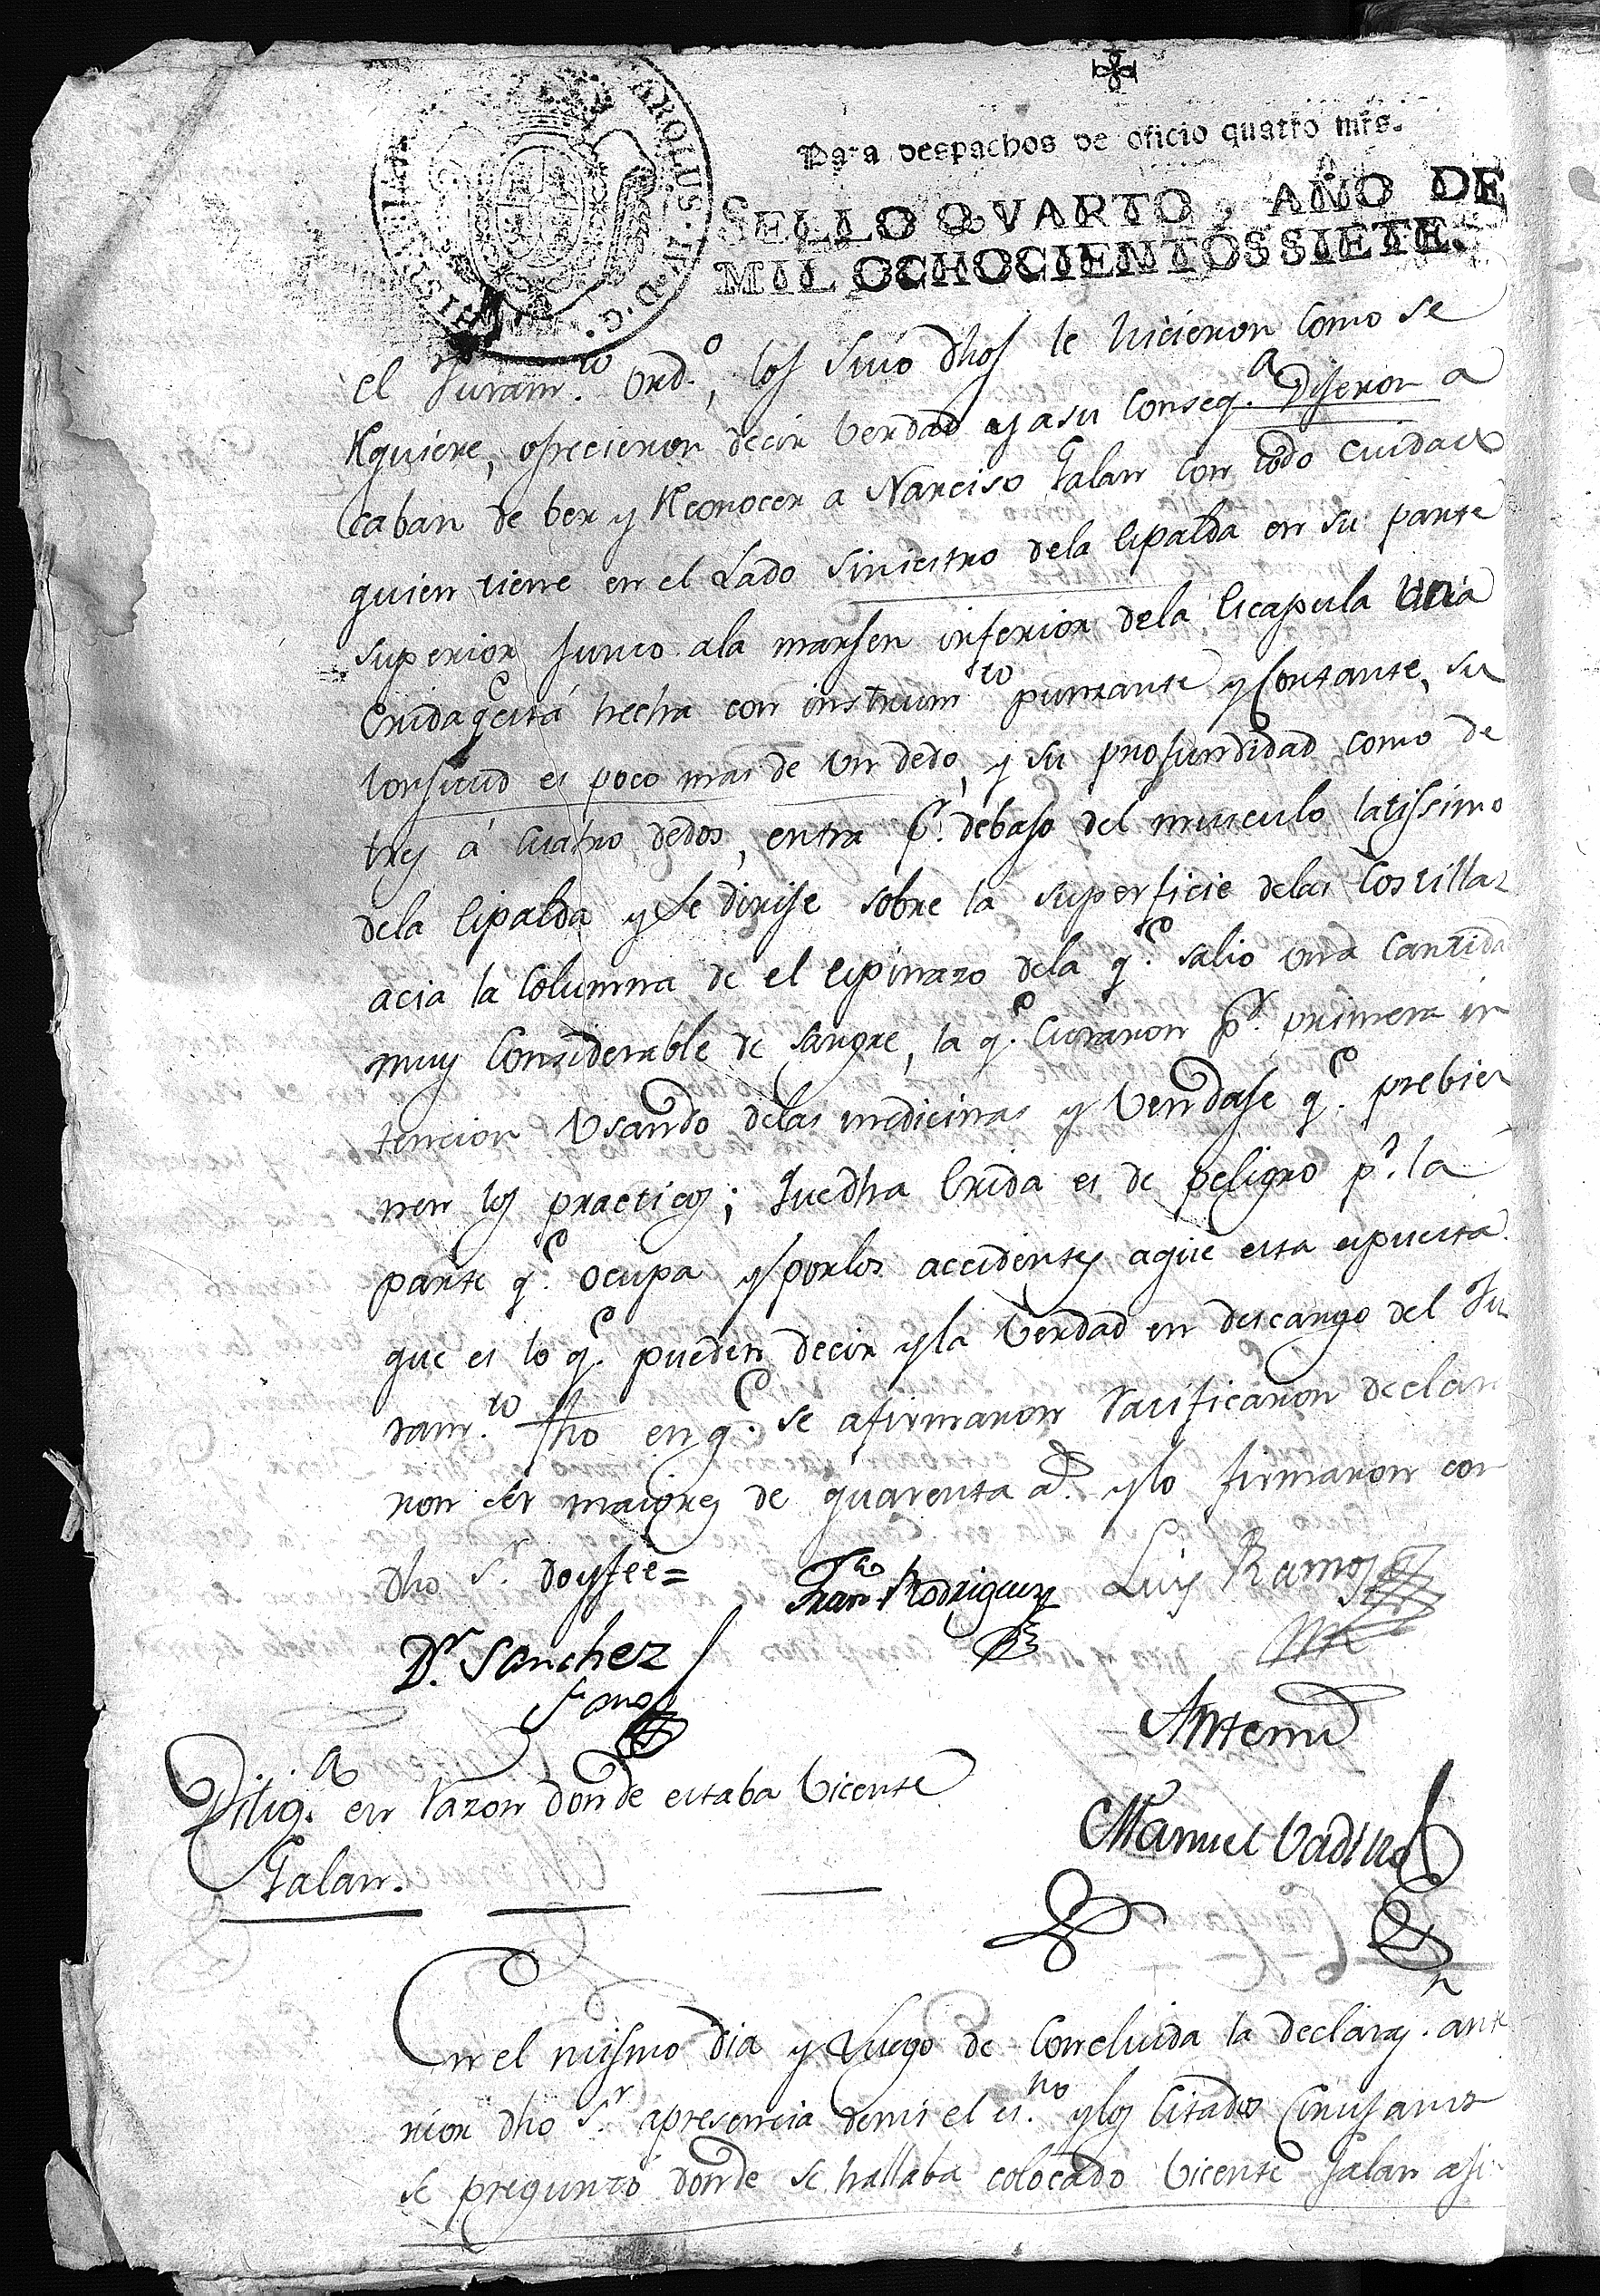 CAROLUS IV D G
HISPANIAR
Para despachos de oficio quatro mrs.
SELLO QVARTO, AÑO DE
MIL OCHOCIENTOS SIETE.
el Juramto. ordo., los suso dhos le hicieron como se
Rquiere, ofrecieron decir Verdad y a su conseqa. Dijeron a
caban de ber y Reconocer a Narciso Galan con todo cuidado
quien tiene en el Lado siniestro dela Espalda en su parte
superior junto ala marjen inferior dela Escapula Una
Erida qe está hecha con instrumto punzante y Cortante, su
lonjitud es poco mas de un dedo, y su profundidad como de
tres á cuatro dedos, entra pr. debajo del musculo latissimo
dela Espalda y se dirije sobre la superficie delas Costillas
acia la Columna de el espinazo dela qe. salio una cantida
muy Considerable de sangre, la qe. Curaron pr. primera in
tencion Usando delas medicinas y Vendaje qe. prebie
nen los practicos; Que dha Erida es de peligro pr. la
parte qe. ocupa y por los accidentes a que esta espuesta.
que es lo qe. pueden decir y la Verdad en descargo del Ju
ramto. fho en qe. se afirmaron Ratificaron declara
ron ser maiores de quarenta as. y lo firmaron con
dho Sr. doy fee =
Franco Rodriguez
Luis Ramos
Dr. Sanchez
Antemi
Manuel Vadillo
Diliga. en Razon donde estaba Vicente
Galan.
En el mismo dia y Luego de Concluida la declarazn. ante
rior dho Sr. a presencia demi el esno. y los Citados Cirujanos
se preguntó donde se hallaba colocado Vicente Galan asi